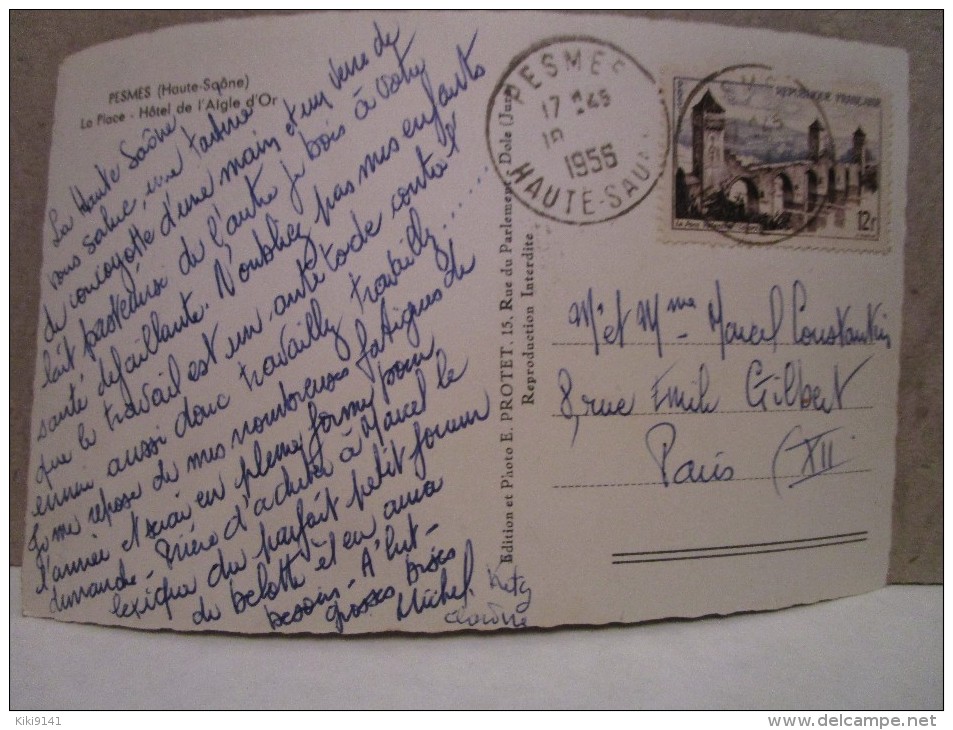 PESMES (Haute-Saône)
La Place - Hôtel de l'Aigle d'Or
La Haute Saône
vous salue, une tartine
de concoyotte d'une main et un verre de
lait pasteurisé de l'autre je bois à votre
santé défaillante. N'oubliez pas mes enfants
que le travail est un antidote contre l'
ennui aussi donc travaillez travaillez......
Je me repose de mes nombreuses fatigues de
l'année et serai en pleine forme pour
dimanche - Prière d'acheter à Marcel le
lexique du parfait petit joueur
de belotte il en aura
besoin - A l'bul -
grosses bises
Michel. Katy
Edition et Photo E. PROTET, 15, Rue du Parlement, Dole (Jura)
Reproduction Interdite
PESMES
17 45
1956
HAUTE-SAÔ
REPUBLIQUE FRANÇAISE
12f
Mr et Mme Marcel Constantin
8, rue Emile Gilbert
Paris (XII
Kiki9141
www.delcampe.net